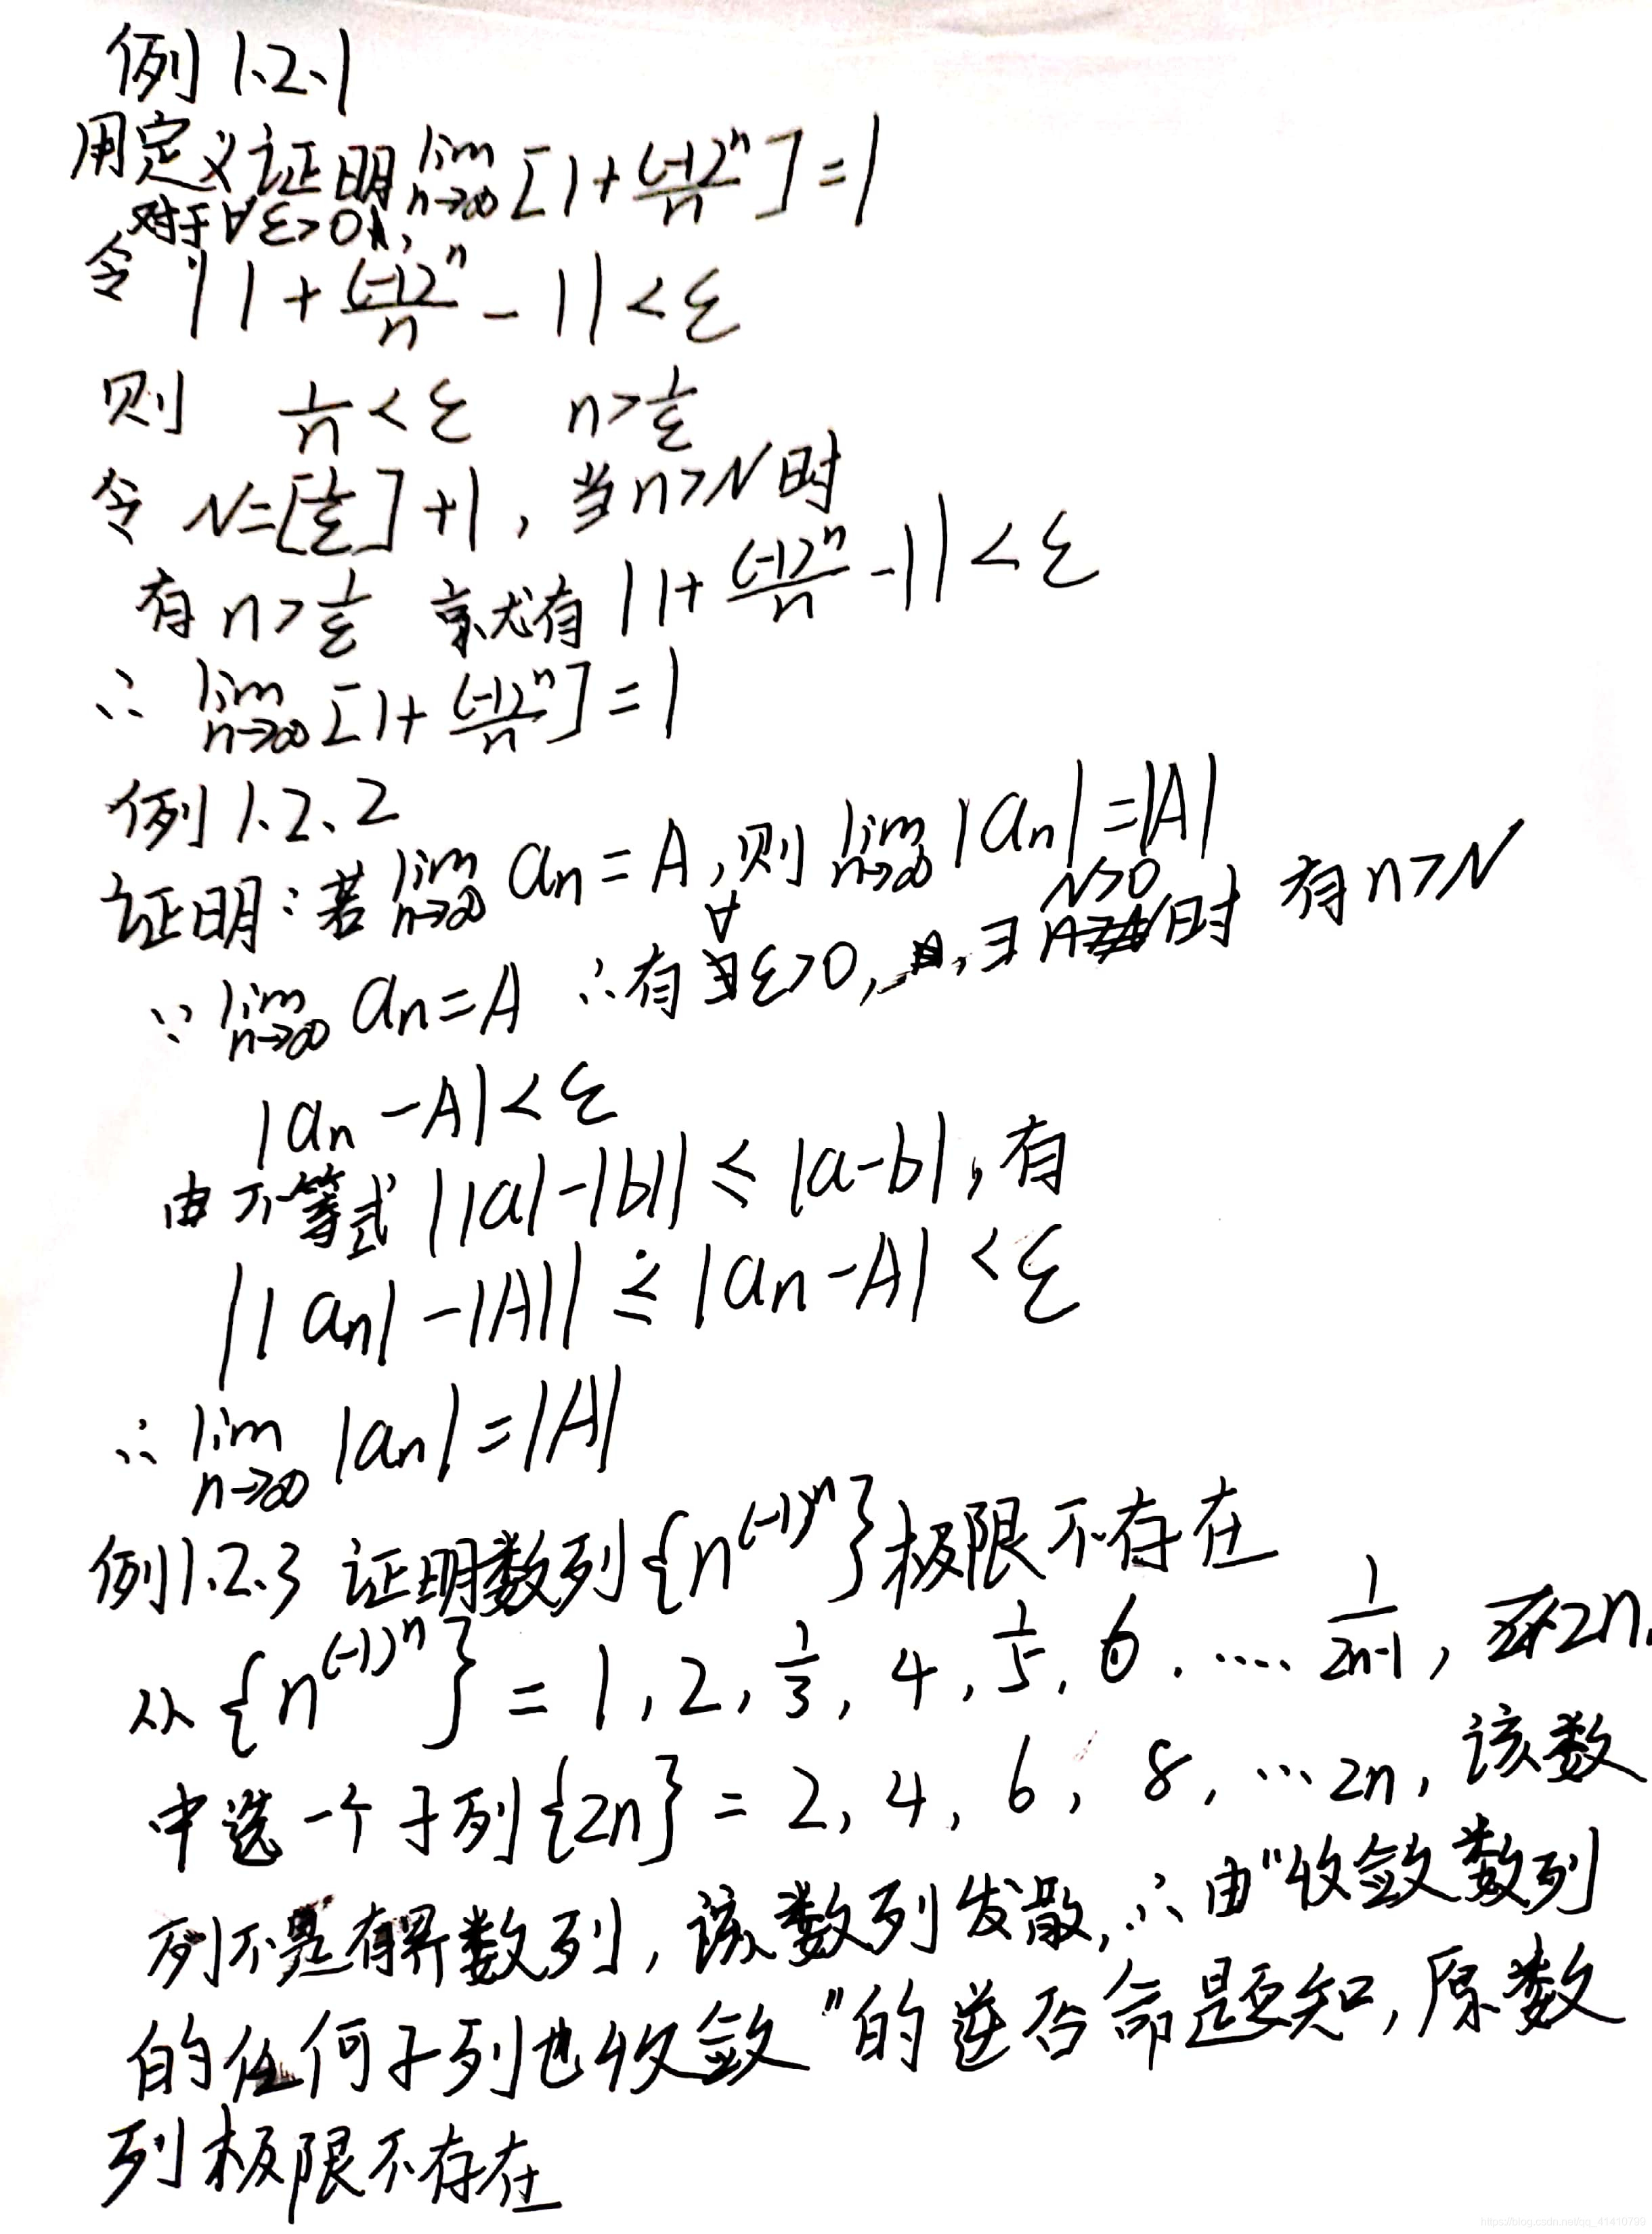 例1、2、1
用定义证明 lim n→∞ [1+(-1)^n/n]=1
对于∀ε>0,
令 |1+(-1)^n/n-1|<ε
则 1/n<ε n>1/ε
令 N=[1/ε]+1, 当n>N时
有n>1/ε 就有|1+(-1)^n/n-1|<ε
∴ lim n→∞ [1+(-1)^n/n]=1
例1、2、2
证明:若 lim n→∞ an=A,则 lim n→∞ |an|=|A|
∵ lim n→∞ an=A ∴有∀ε>0, ∃ N>0时 有n>N
|an-A|<ε
由不等式||a|-|b||≤|a-b|,有
||an|-|A||≤|an-A|<ε
∴ lim n→∞ |an|=|A|
例1、2、3 证明数列{n^(-1)^n}极限不存在
从{n^(-1)^n}=1,2,1/3,4,1/5,6,....1/2n-1, 2n,
中选一个子列{2n}=2,4,6,8,…2n,该数
列不是有界数列,该数列发散,∴由"收敛数列
的任何子列也收敛"的逆否命题知,原数
列极限不存在
https://blog.csdn.net/qq_41410799